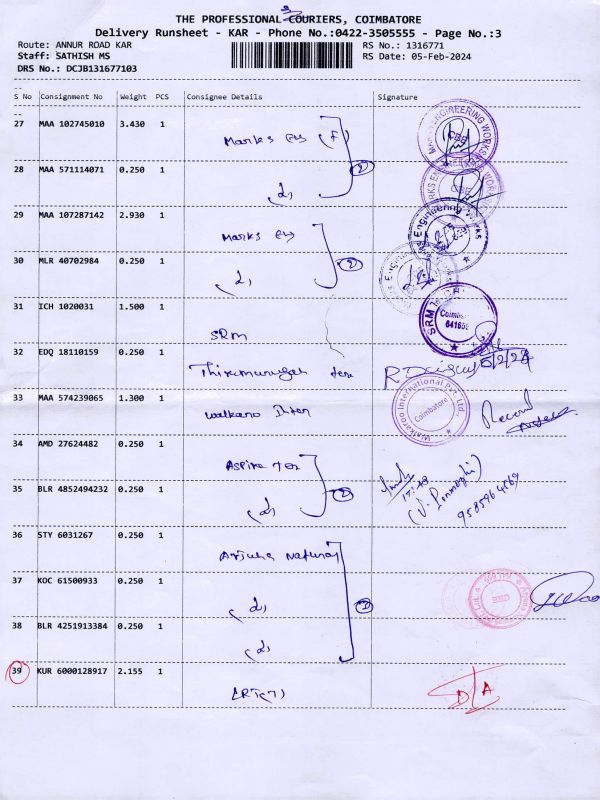 THE PROFESSIONAL COURIERS, COIMBATORE
Delivery Runsheet - KAR - Phone No.:0422-3505555 - Page No.:3
Route: ANNUR ROAD KAR
RS No.: 1316771
Staff: SATHISH MS
RS Date: 05-Feb-2024
DRS No.: DCJB131677103
S No Consignment No Weight PCS Consignee Details Signature
27 MAA 102745010 3.430 1
Marks Eng (F)
28 MAA 571114071 0.250 1
29 MAA 107287142 2.930 1
Marks Eng
30 MLR 40702984 0.250 1
31 ICH 1020031 1.500 1
SRM
32 EDQ 18110159 0.250 1
Thirumurugan
33 MAA 574239065 1.300 1
Walkaroo International Pvt. Ltd.
Coimbatore
34 AMD 27624482 0.250 1
Aspire Tex
35 BLR 4852494232 0.250 1
36 STY 6031267 0.250 1
Arjuna Natural
37 KOC 61500933 0.250 1
38 BLR 4251913384 0.250 1
39 KUR 6000128917 2.155 1
D/A